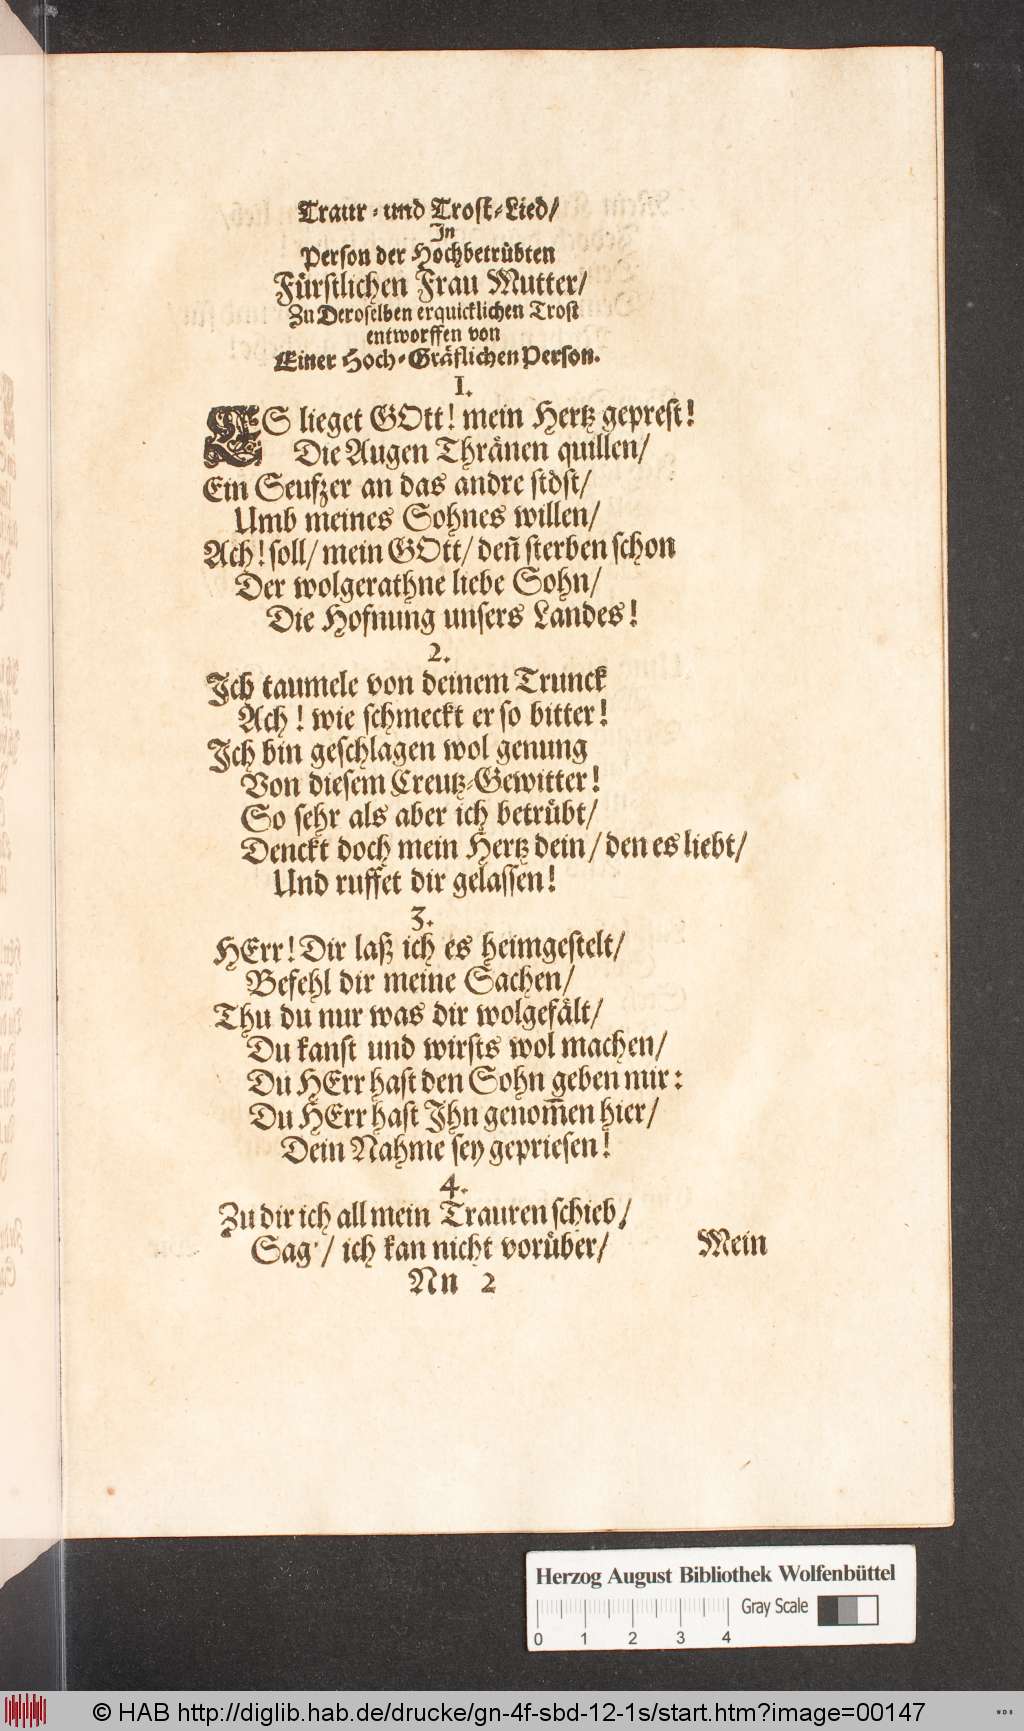 Traur-und Trost-Lied/
In
Person der Hochbetrübten
Fürstlichen Frau Mutter/
Zu Deroselben erquicklichen Trost
entworffen von
Einer Hoch-Gräflichen Person.
1.
ES lieget GOtt! mein Hertz geprest!
Die Augen Thränen quillen/
Ein Seufzer an das andre stöst/
Umb meines Sohnes willen/
Ach! soll/ mein GOtt/ deñ sterben schon
Der wolgerathne liebe Sohn/
Die Hofnung unsers Landes!
2.
Ich taumele von deinem Trunck
Ach! wie schmeckt er so bitter!
Ich bin geschlagen wol genung
Von diesem Creutz-Gewitter!
So sehr als aber ich betrübt/
Denckt doch mein Hertz dein/ den es liebt/
Und ruffet dir gelassen!
3.
HErr! Dir laß ich es heimgestelt/
Befehl dir meine Sachen/
Thu du nur was dir wolgefält/
Du kanst und wirsts wol machen/
Du HErr hast den Sohn geben mir:
Du HErr hast Ihn genom̅en hier/
Dein Nahme sey gepriesen!
4.
Zu dir ich all mein Trauren schieb/
Sag'/ ich kan nicht vorüber/
Mein
Nn 2
Herzog August Bibliothek Wolfenbüttel
Gray Scale
0 1 2 3 4
© HAB http://diglib.hab.de/drucke/gn-4f-sbd-12-1s/start.htm?image=00147